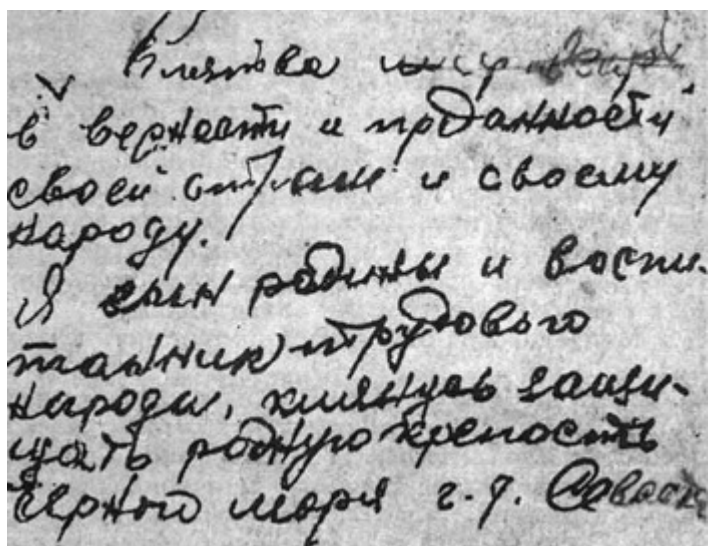 Клятва
в верности и преданности
своей стране и своему
народу.
Я сын родины и воспи-
танник трудового
народа, клянусь защи-
щать родную крепость
Черного моря г. Севаст